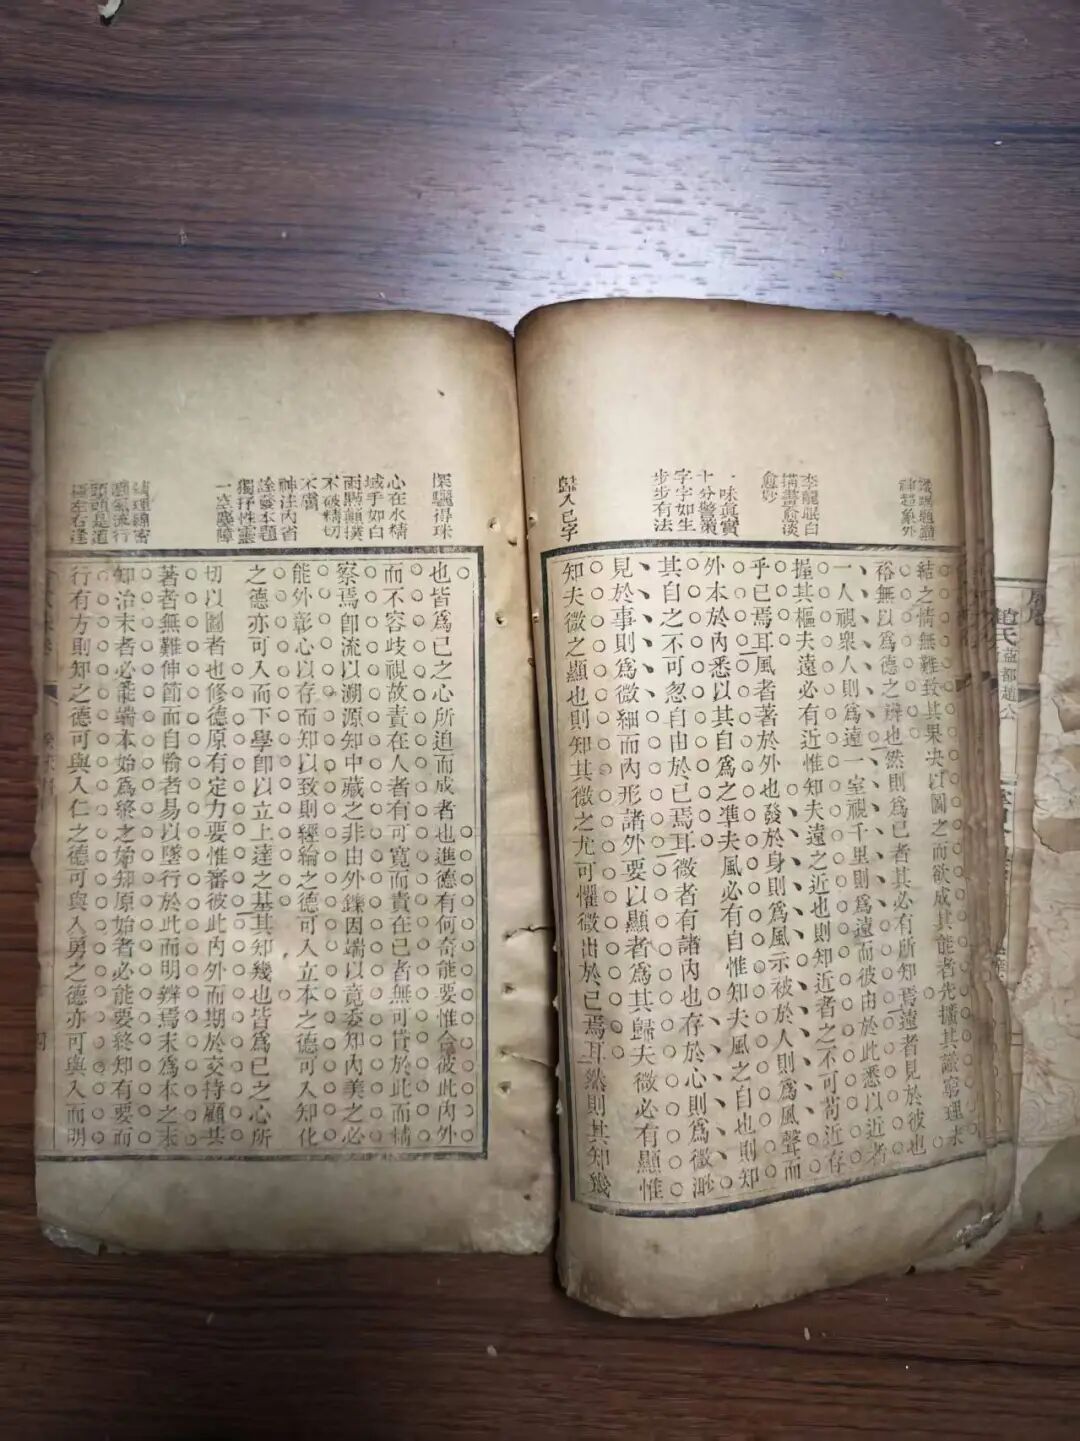 識理通神
神超象外
李龍眠白
描畫愈淡
愈妙
一味真實
十分警策
字字如生
步步有法
歸入己字
結之情無難致其果决以圖之而欲成其能者先擴其識窮理未
裕無以爲德之辨也然則爲己者其必有所知焉遠者見於彼也
一人視衆人則爲遠一室視千里則爲遠而彼由於此悉以近者
握其樞夫遠必有近惟知夫遠之近也則知近者之不可苟近存
乎己焉耳風者著於外也發於身則爲風示被於人則爲風聲而
外本於內悉以其自爲之準夫風必有自惟知夫風之自也則知
其自之不可忽自由於己焉耳微者有諸內也存於心則爲微渺
見於事則爲微細而內形諸外要以顯者爲其歸夫微必有顯惟
知夫微之顯也則知其微之尤可懼微出於己焉耳然則其知幾
探驪得珠
心在水精
域手如白
雨點顛撲
不破精切
不膚
神注內省
詮發本題
獨抒性靈
一空塵障
頭頭是道
左右逢
也皆爲己之心所迫而成者也進德有何奇能要惟合彼此內外
而不容歧視故責在人者有可寬而責在己者無可貰於此而精
察焉卽流以溯源知中藏之非由外鑠因端以竟委知內美之必
能外彰心以存而知以致則經綸之德可入立本之德可入知化
之德亦可入而下學卽以立上達之基其知幾也皆爲己之心所
切以圖者也修德原有定力要惟審彼此內外而期於交持顧其
著者無難伸節而自喻者易以墜行於此而明辨焉末爲本之末
知治末者必能端本始爲終之始知原始者必能要終知有要而
行有方則知之德可與入仁之德可與入勇之德亦可與入而明